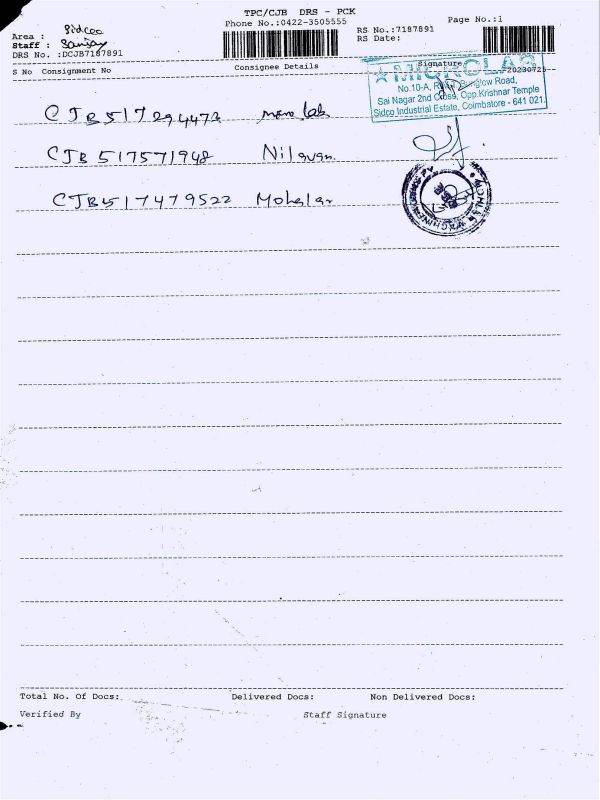 TPC/CJB DRS - PCK
Phone No.:0422-3505555
Page No.:1
Area : Sidco
RS No.:7187891
Staff : Sanjay
RS Date:
DRS No. :DCJB7187891
20230725
S No Consignment No Consignee Details Signature
MICROLAB
No.10-A, Bunglow Road,
Sai Nagar 2nd Cross, Opp.Krishnar Temple
Sidco Industrial Estate, Coimbatore - 641 021.
CJB517294473 Micro lab
CJB517571948 Nilavan
CJB517479522
Total No. Of Docs: Delivered Docs: Non Delivered Docs:
Verified By Staff Signature